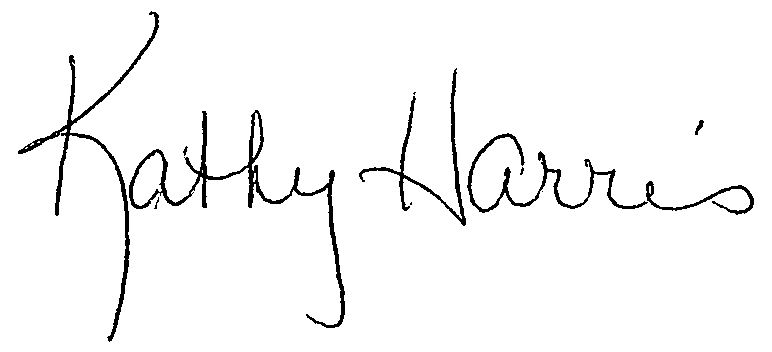 Kathy Harris